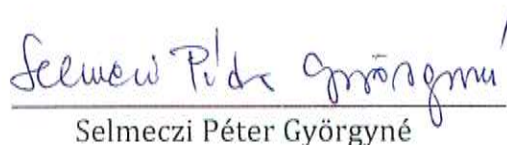 Selmeczi Péter Györgyné
Selmeczi Péter Györgyné